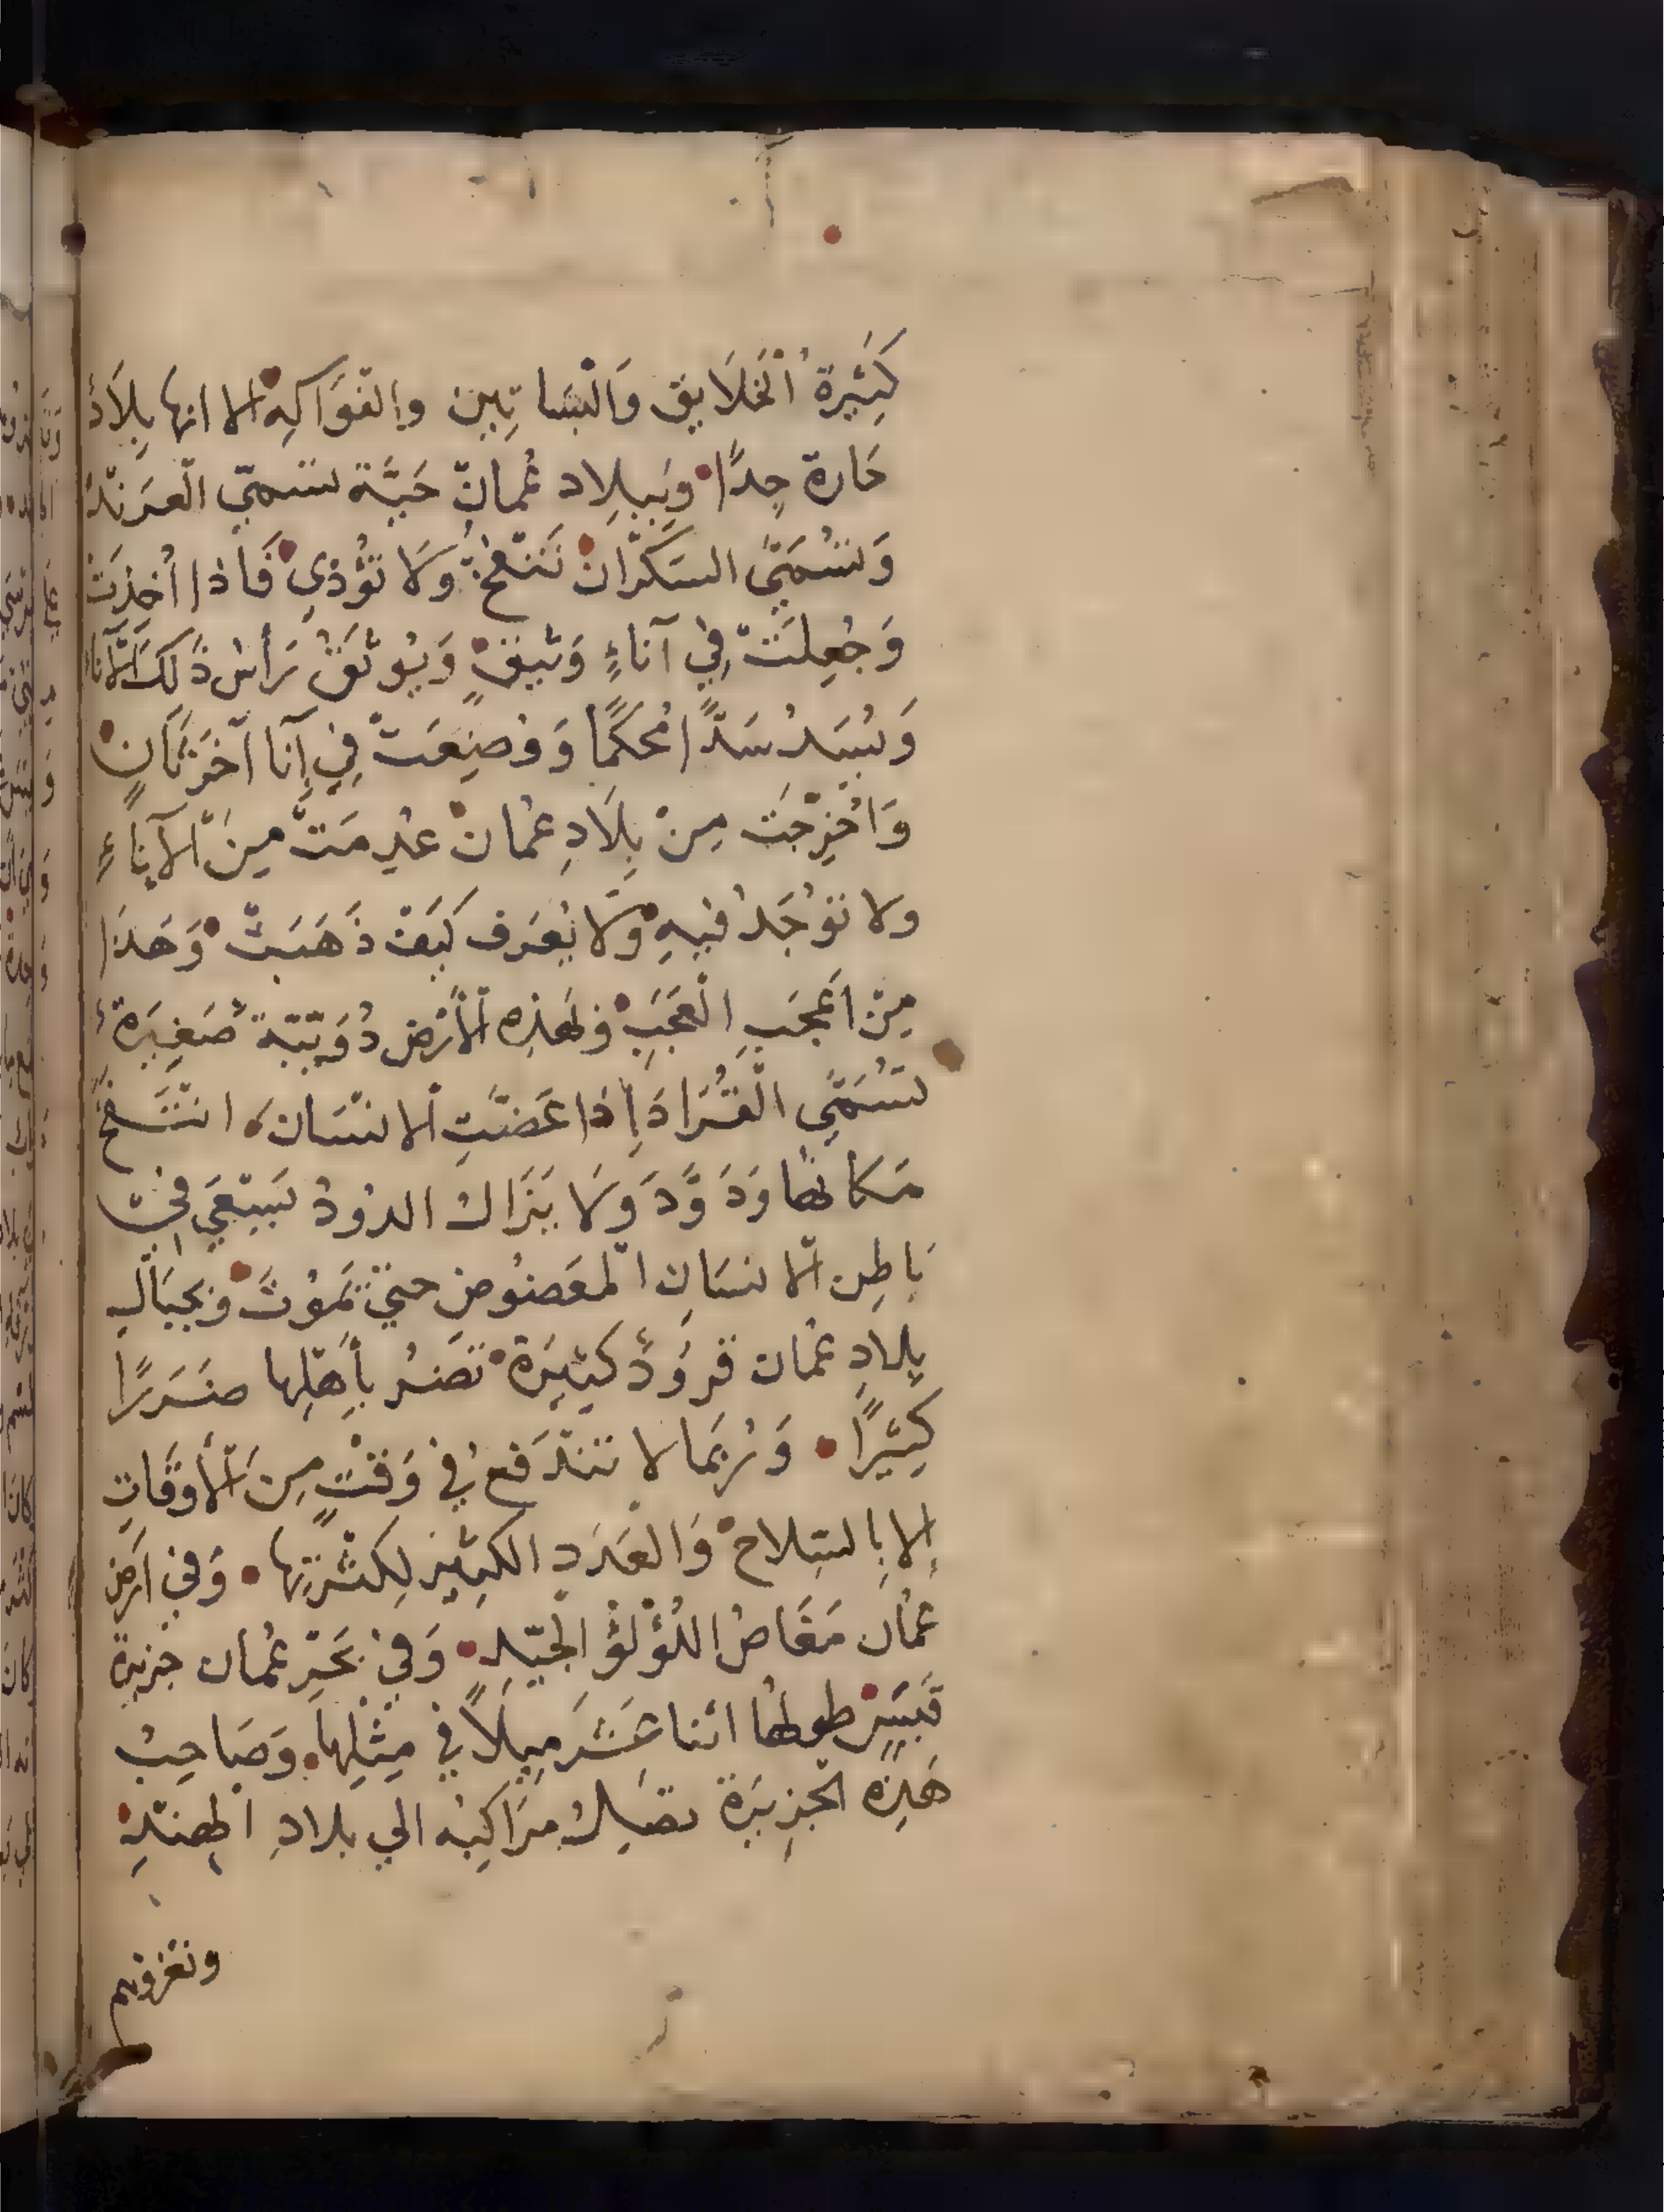 كَثِيرَةُ اْلخَلَايِق وَالْبَسَاتِين والْفَوَاكِهِ الا انها بِلَادٌ
حَارة جِدًّا وَبِبِلِاد عُمانَ حَيَّة تسَمّي الْعَرَنْدُ
وَتسُمَّيَ السَكْرَانْ تَنْفخُ وَلَا تُؤْذيِ فَاذا أُخِذَتْ
وَجُعِلَتْ فِي آناءٍ وَثيقٍ وَيُوثَقُ رَأسُ ذَلِكَ اْلاناءِ
وَيُسَدُ سَدًّا مُحكَمًا وَوُضِعَتْ فِي إِنَا آخَرَ ثَانٍ
وَاُخْرِجَت مِنْ بِلَادِ عمُانْ عدُِمَتْ مِنَ اْلآِنَاءِ
ولا توُجَدُ فيهِ وَلَا يُعرَف كَيَفْ ذَهَبَتْ وَهَذَا
مِنْ اَعْجَبِ الْعَجَبِ وَلهذِه اْلأرْضِ دُوَيْبَّة صَغِيَرةٌ
تسَُمَّي الْقُرَادَ إِذا عَضَّتِ اْلانْسَان انْتَفَخَ
مَكَانهُا وَدَوَّدَ وَلَا يَزَالُ الدوُدُ يَسْعَي فيِ
بَاطِن اْلانسَانِ اْلمَعَضُوضِ حتيَّ يَموُتَ وَبجِبَالِ
بِلادِ عُمان قرِوُدٌ كَثيِرَة تَضُرُ بأَِهْلِها ضَرَرًا
كَثِيْرًا وَرُبَمَا لا تَنْدَفعُ فيِ وَقْتٍ مِنَ اْلأَوْقَاتِ
إِلا بِالسِلاحْ وَالْعَدَدِ الكَثِيْرِ لِكَثْرَتِها وَفيِ اَرْضِ
عُمَان مَغَاصُ اللُؤْلُؤِ الْجَيّدِ وَفيِ بَحْرِ عُمان جَزِيَرةُ
قَيْسٍ طولهُا اثنا عَشَرَ مِيلًا فيِ مِثْلِهَا وَصَاحِبُ
هَذِه الْجَزِيَرة تصَلُ مَرَاكِبُه الي بلادِ الهِنْدِ
وتغزوهم